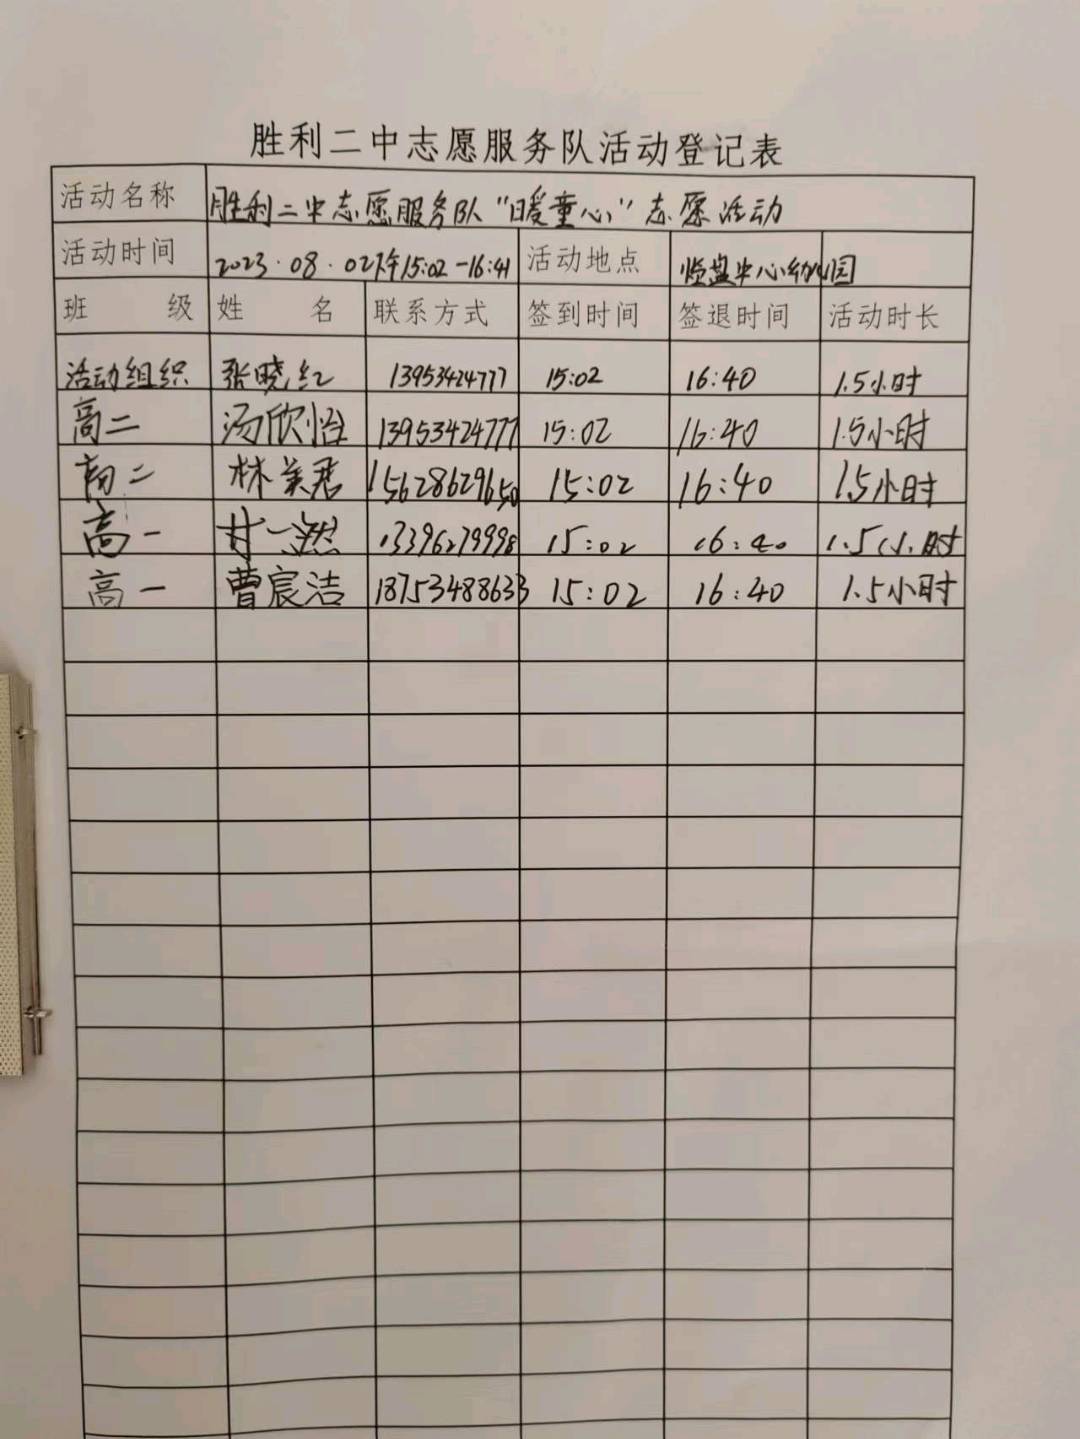 胜利二中志愿服务队活动登记表
活动名称 胜利二中志愿服务队“暖童心”志愿活动
活动时间 2023.08.02下午15:02-16:41 活动地点 中心幼儿园
班 级 姓 名 联系方式 签到时间 签退时间 活动时长
活动组织 张晓红 13953424777 15:02 16:40 1.5小时
高二 汤欣怡 13953424777 15:02 16:40 1.5小时
高二 林美君 15628629650 15:02 16:40 1.5小时
高一 甘一然 13396279998 15:02 16:40 1.5小时
高一 曹宸洁 18753488633 15:02 16:40 1.5小时